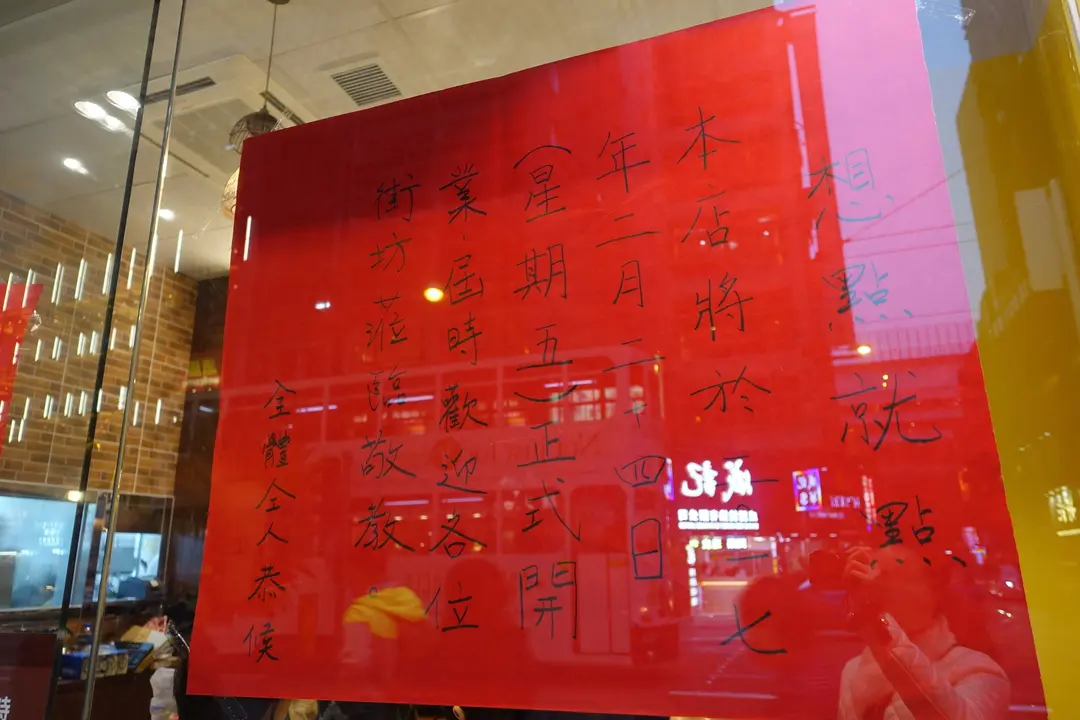 想點就點
本店將於二〇一七
年二月二十四日
(星期五)正式開
業,屆時歡迎各位
街坊蒞臨敬教。
全體仝人恭候